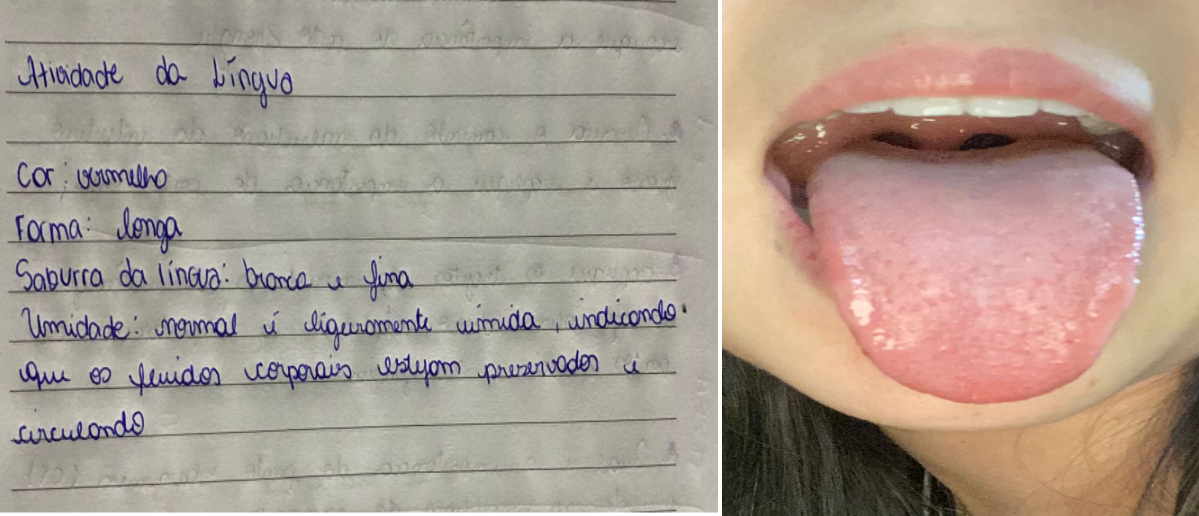 Atividade da Língua
Cor: vermelho
Forma: longa
Saburra da língua: branca e fina
Umidade: normal é ligeiramente úmida, indicando
que os fluidos corporais estejam preservados e
circulando